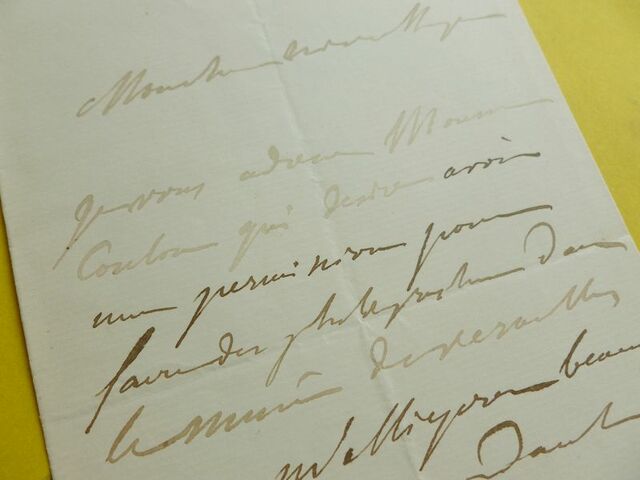 Monsieur
Je vous adresse Monsieur
Coulon qui désire avoir
une permission pour
faire des photographies dans
le Musée de Versailles
m'obligeren beau